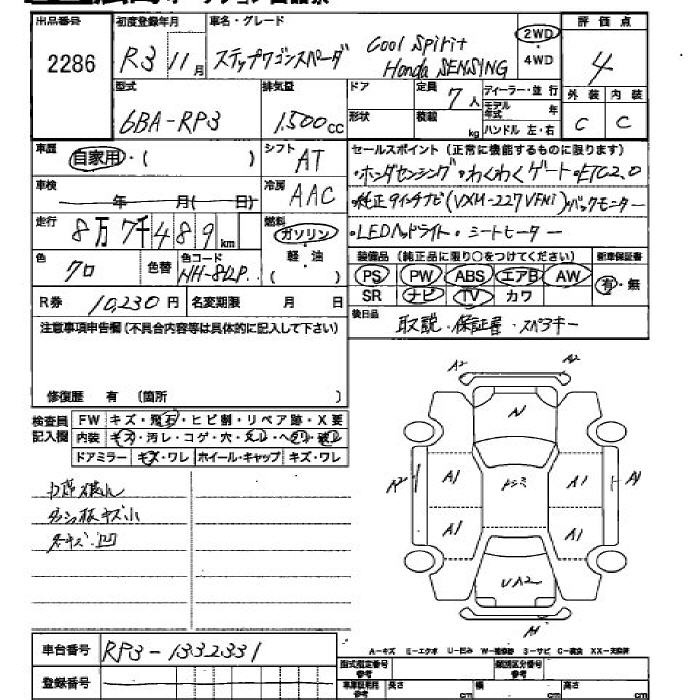 出品番号 2286
初度登録年月 R3 11月
車名・グレード ステップワゴンスパーダ Cool Spirit Honda SENSING
2WD・4WD
評価点 4
外装 C 内装 C
型式 6BA-RP3
排気量 1,500cc
ドア 形状
定員 7人
積載 kg
ディーラー・並行
モデル年式 年
ハンドル 左・右
車歴 自家用・( )
シフト AT
車検 年 月( 日)
冷房 AAC
走行 8万7千489km
燃料 ガソリン・軽・油 ( )
色 クロ 色替
色コード NH-812P
R券 10,230円
名変期限 月 日
セールスポイント(正常に機能するものに限ります)
・ホンダセンシング・わくわくゲート・ETC2.0
・純正9インチナビ(VXM-227VFNi)バックモニター
・LEDヘッドライト・シートヒーター
装備品(純正品に限り○をつけてください)
新車保証書 有・無
PS PW ABS エアB AW
SR ナビ TV カワ
後日品 取説・保証書・スペアキー
注意事項申告欄(不具合内容等は具体的に記入して下さい)
修復歴 有 (箇所 )
検査員記入欄
FW キズ・飛石・ヒビ割・リペア跡・X要
内装 キズ・汚レ・コゲ・穴・スレ・ヘコリ・破レ
ドアミラー キズ・ワレ ホイール・キャップ キズ・ワレ
キズ・凹
A2 A2
A
A2 A1 ドンミ A1 A1
A1 A1
UA2
A1
A-キズ E-エクボ U-凹み W-補修跡 S-サビ C-腐食 XX-交換済
車台番号 RP3-1332331
登録番号
型式指定番号 参考
類別区分番号 参考
長さ cm 幅 cm 高さ cm